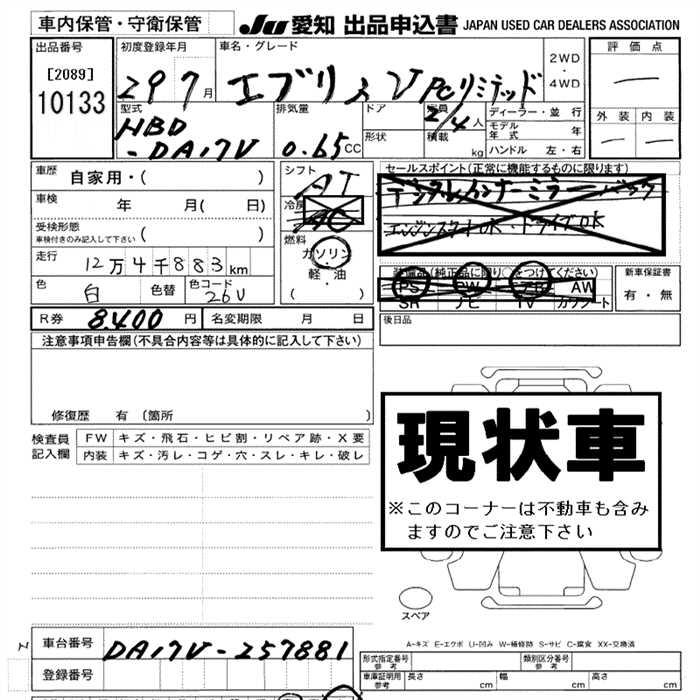 車内保管・守衛保管
JU 愛知 出品申込書 JAPAN USED CAR DEALERS ASSOCIATION
出品番号
[2089]
10133
初度登録年月
29 7 月
車名・グレード
エブリィV PCリミテッド
2WD
・
4WD
評価点
外装 内装
型式
HBD
-DA17V
排気量
0.65 CC
ドア
形状
定員
2/4 人
積載
kg
ディーラー・並行
モデル年式 年
ハンドル 左・右
車歴
自家用・( )
車検 年 月( 日)
受検形態
車検付きのみ記入して下さい ( )
走行 12万4千883km
色 白 色替 色コード 26U
シフト
AT
冷房
AC
燃料
ガソリン
・
軽・油
( )
セールスポイント(正常に機能するものに限ります)
デジタルインナーミラー・バック
エンジンスタートOK・ドライブOK
装備品(純正品に限り○をつけてください)
PS PW AW
SR ナビ TV カワシート
新車保証書
有・無
後日品
R券 8.400 円 名変期限 月 日
注意事項申告欄(不具合内容等は具体的に記入して下さい)
修復歴 有 〔箇所 〕
検査員記入欄
FW キズ・飛石・ヒビ割・リペア跡・X要
内装 キズ・汚レ・コゲ・穴・スレ・キレ・破レ
現状車
※このコーナーは不動車も含み
ますのでご注意下さい
スペア
A-キズ E-エクボ U-凹み W-補修跡 S-サビ C-腐食 XX-交換済
車台番号 DA17V-257881
登録番号
形式指定番号
参考
類別区分番号
参考
車庫証明用
参考
長さ cm 幅 cm 高さ cm